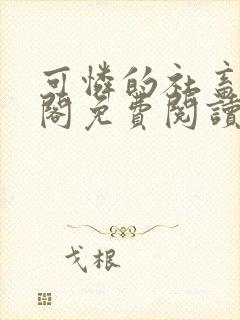 可憐的社畜
閣免費閱讀
戈根